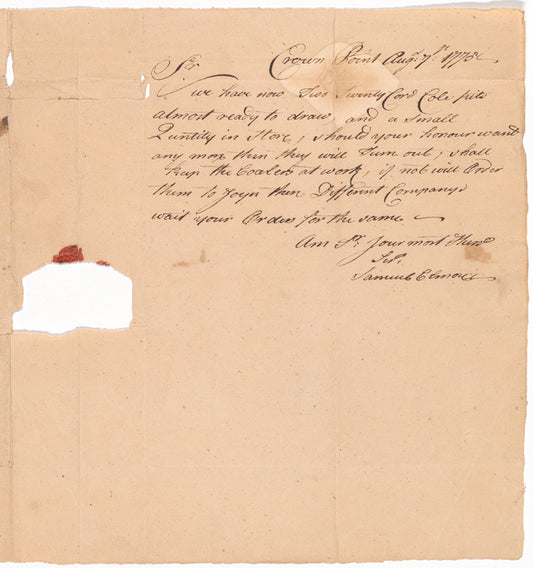 Crown Point Augt. 7th. 1775
Sr.
we have now Two Twenty Cord Cole pits
almost ready to draw, and a small
Quntity in Store, should your honour want
any more then they will Turn out, shall
keep the Coalers at work, if not will Order
them to Joyn then Different Companys
wait your Orders for the same
Am Sr. your most Humb
Set.
Samuel Elmore